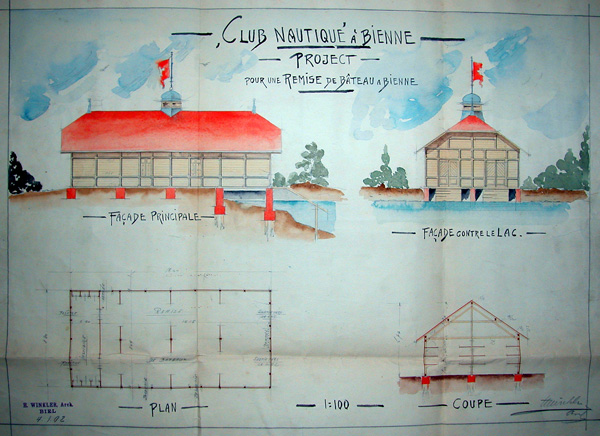 CLUB NAUTIQUE À BIENNE
PROJECT
POUR UNE REMISE DE BÂTEAU A BIENNE
FAÇADE PRINCIPALE
FAÇADE CONTRE LE LAC.
PLAN
1:100
COUPE
H. WINKLER, Arch.
BIEL